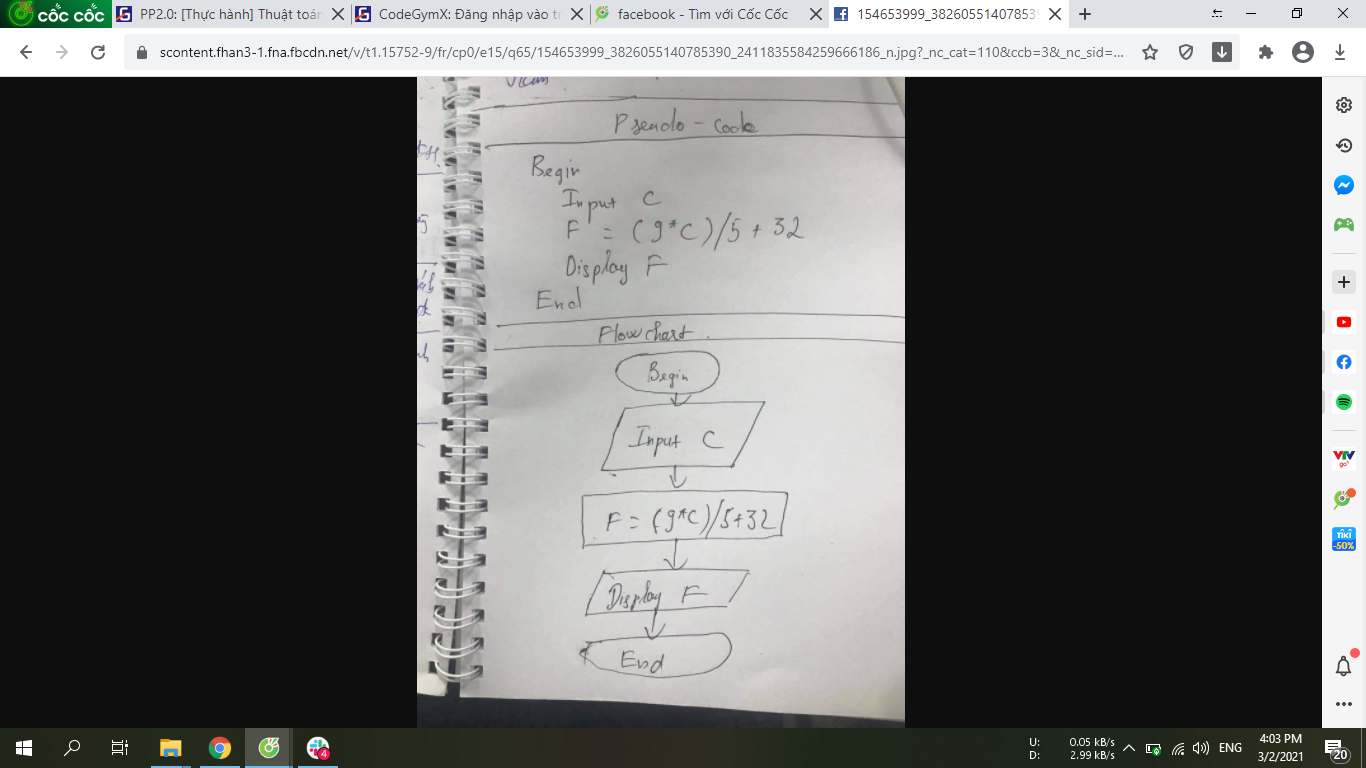 cốc cốc
PP2.0: [Thực hành] Thuật toán
CodeGymX: Đăng nhập vào tr
facebook - Tìm với Cốc Cốc
154653999_382605514078539
scontent.fhan3-1.fna.fbcdn.net/v/t1.15752-9/fr/cp0/e15/q65/154653999_3826055140785390_2411835584259666186_n.jpg?_nc_cat=110&ccb=3&_nc_sid=...
Pseudo - code
Begin
Input C
F = (9*C)/5 + 32
Display F
End
Flowchart.
Begin
Input C
F = (9*C)/5+32
Display F
End
VTV
go
TIKI
-50%
4
U: 0.05 kB/s
D: 2.99 kB/s
ENG
4:03 PM
3/2/2021
20